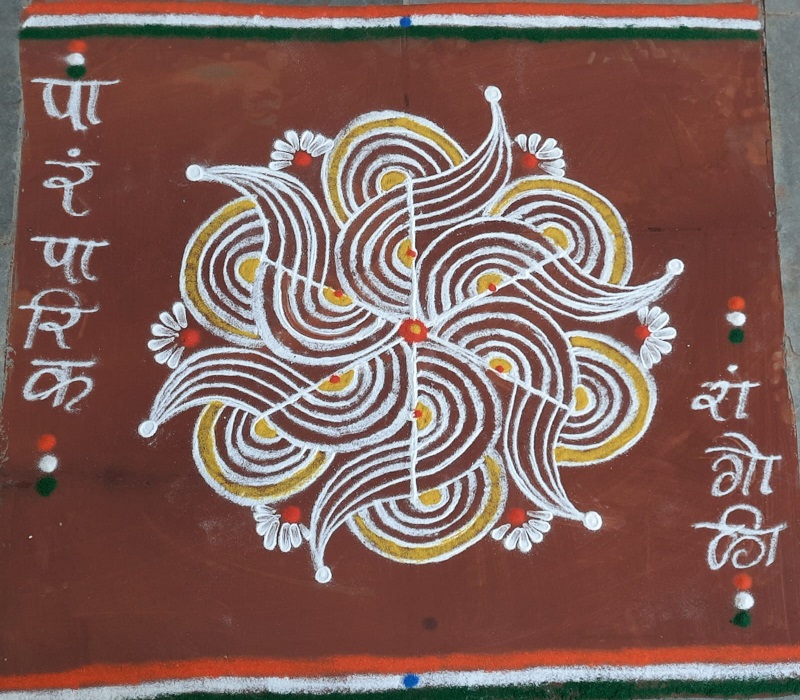 पारंपारिक
रांगोळी